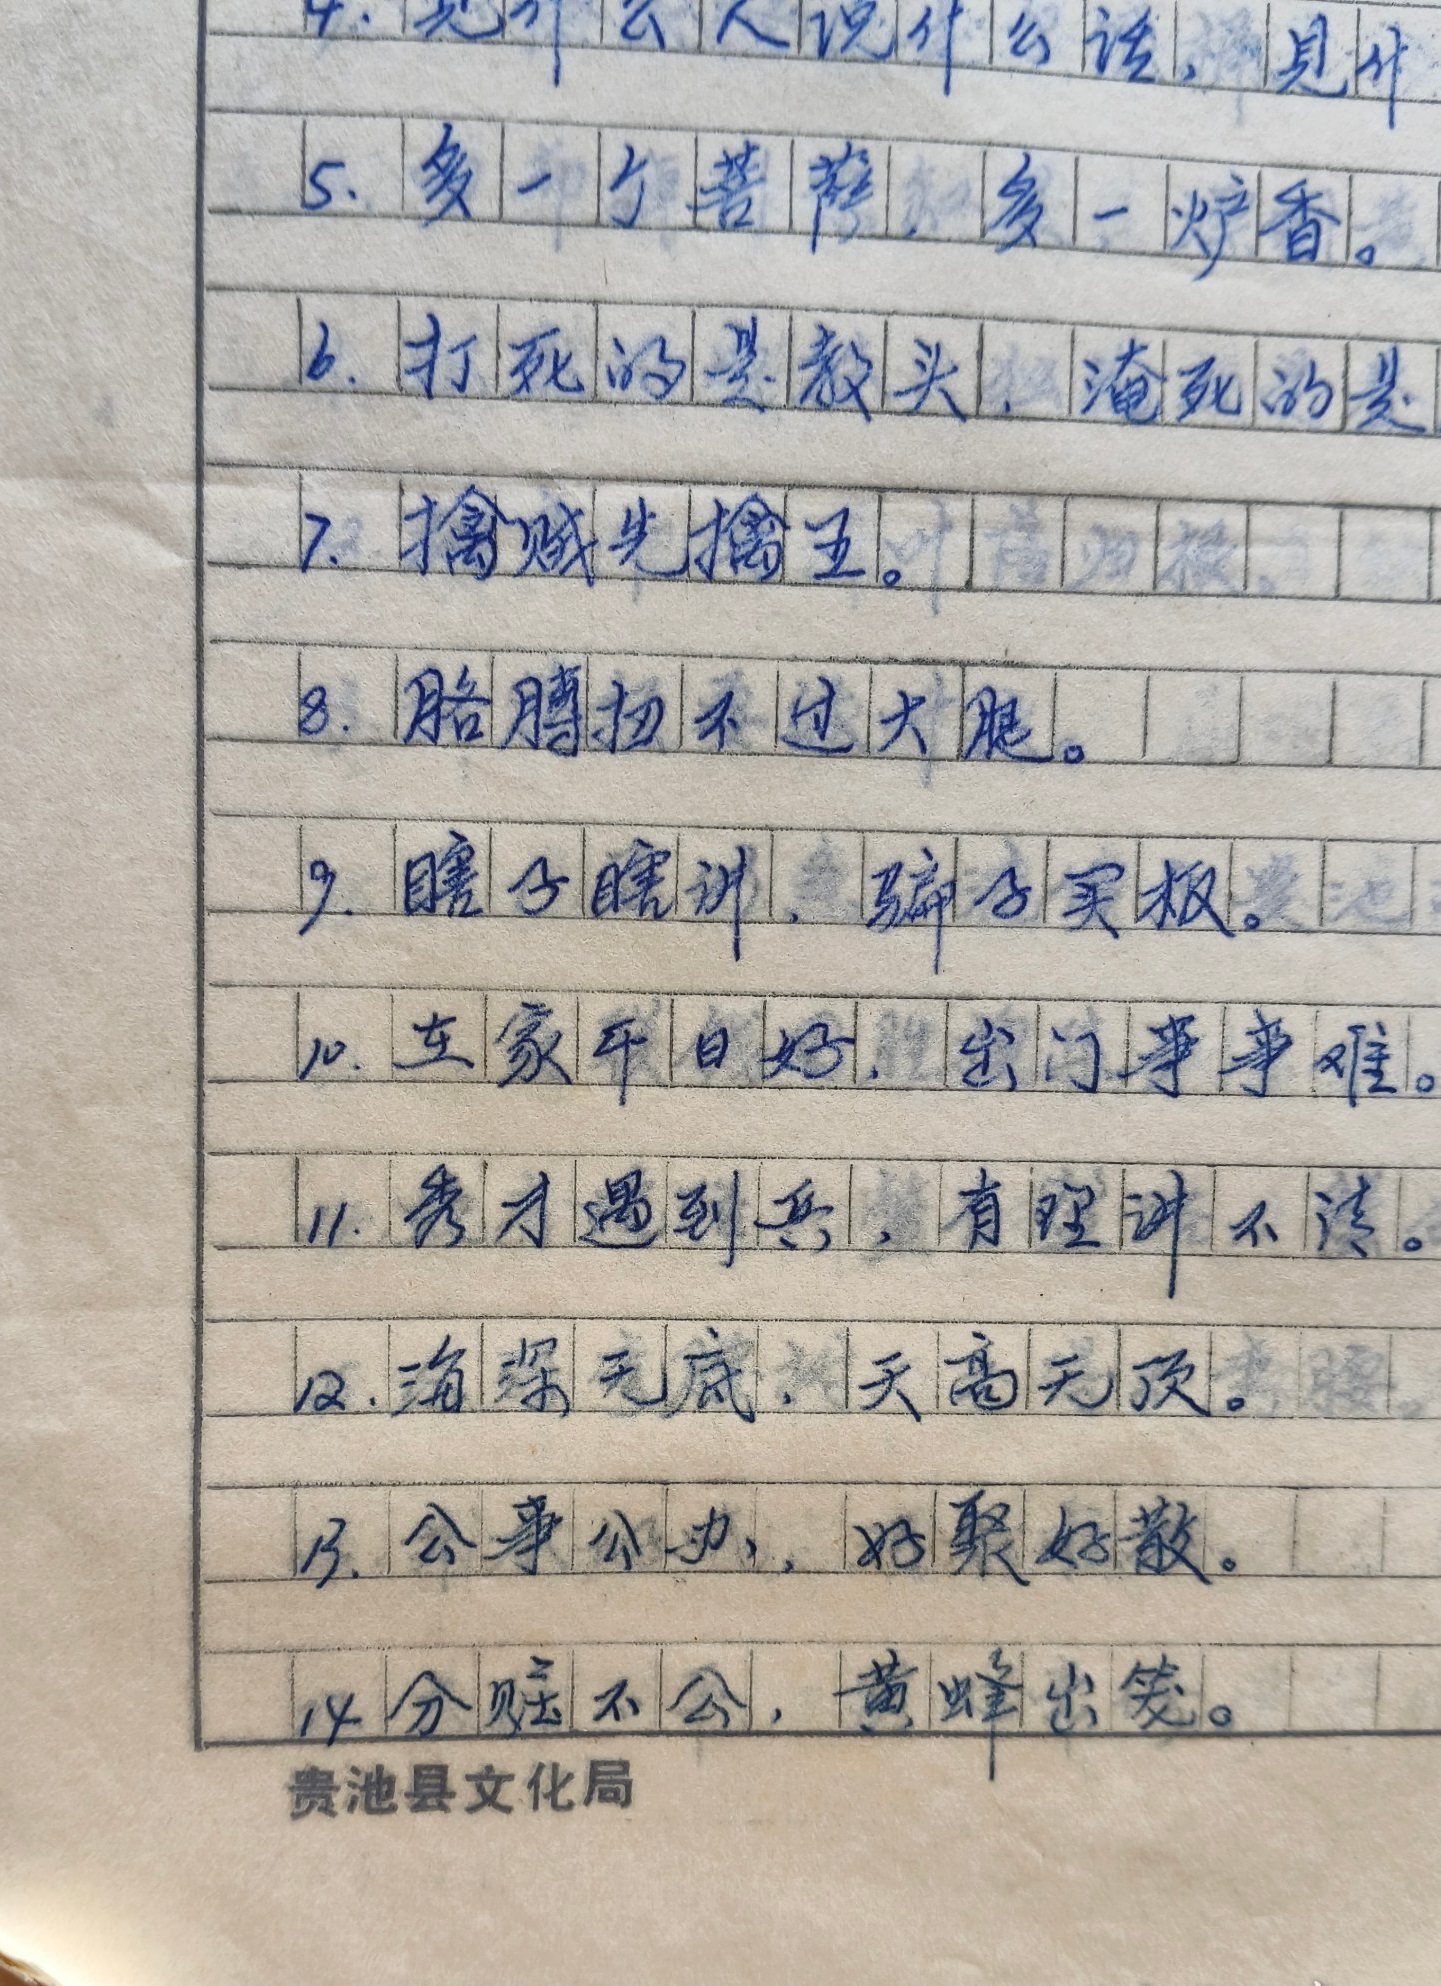 4. 见什么人说什么话，见什
5. 多一个菩萨，多一炉香。
6. 打死的是教头，淹死的是
7. 擒贼先擒王。
8. 胳膊扭不过大腿。
9. 瞎子瞎讲，骗子买板。
10. 在家千日好，出门事事难。
11. 秀才遇到兵，有理讲不清。
12. 海深无底，天高无顶。
13. 公事公办，好聚好散。
14 分赃不公，黄蜂出笼。
贵池县文化局